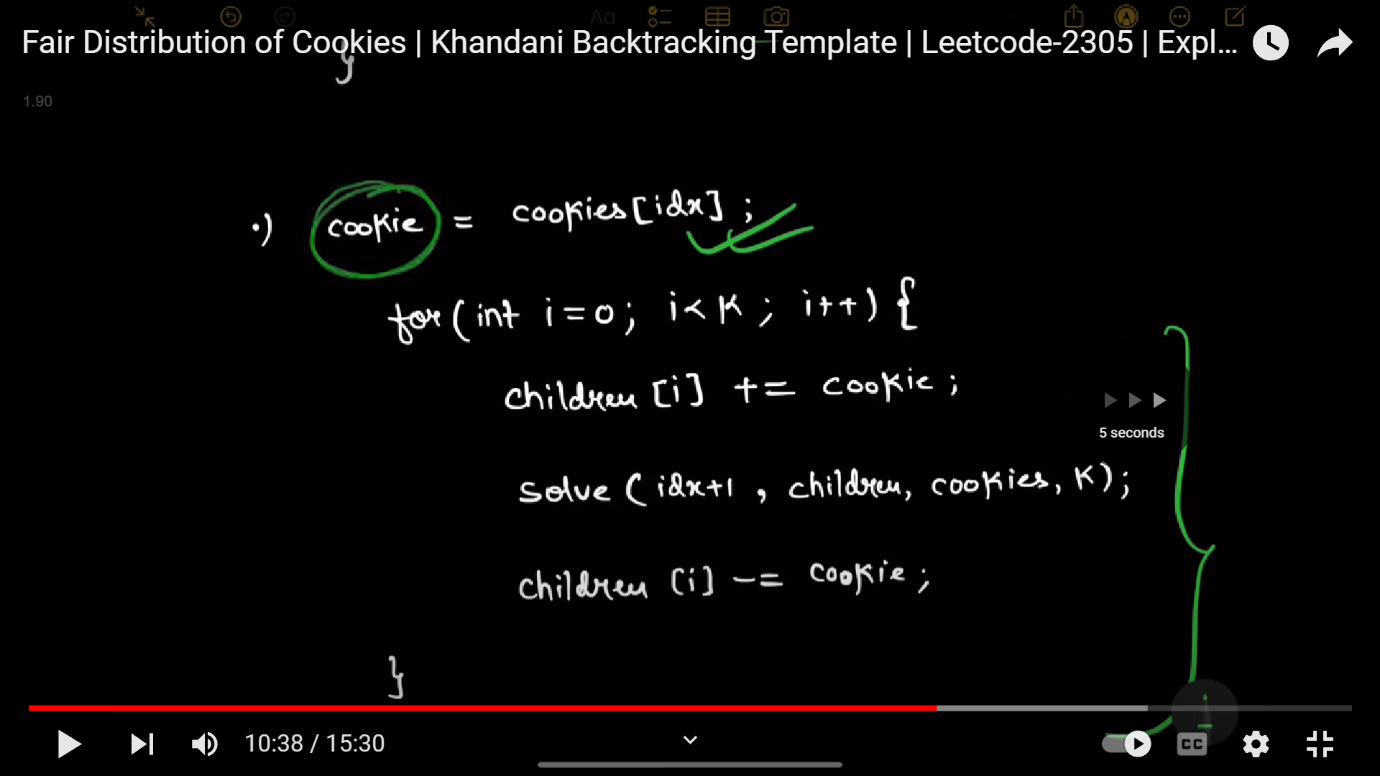 Aa
Fair Distribution of Cookies | Khandani Backtracking Template | Leetcode-2305 | Expl...
}
1.90
•) cookie = cookies[idx] ;
for(int i=0; i<K; i++) {
children [i] += cookie;
5 seconds
solve (idx+1, children, cookies, K);
children [i] -= cookie;
}
10:38 / 15:30
CC